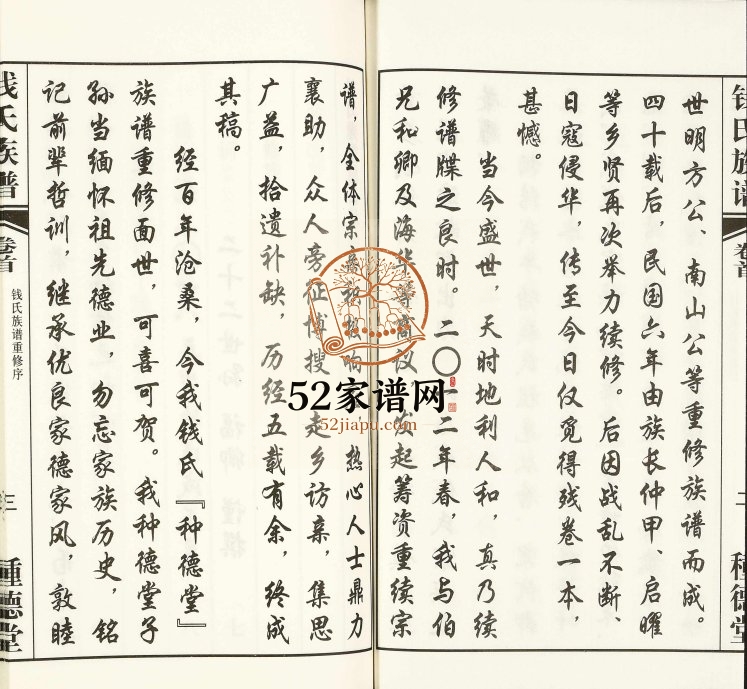 钱氏族谱
卷首
二
種德堂
世明方公、南山公等重修族谱而成。
四十载后，民国六年由族长仲甲、启曜
等乡贤再次举力续修。后因战乱不断、
日寇侵华，传至今日仅觅得残卷一本，
甚憾。
当今盛世，天时地利人和，真乃续
修谱牒之良时。二〇一二年春，我与伯
兄和卿及海华等商议，发起筹资重续宗
谱，全体宗亲 响 热心人士鼎力
襄助，众人旁征博搜，走乡访亲，集思
广益，拾遗补缺，历经五载有余，终成
其稿。
经百年沧桑，今我钱氏『种德堂』
族谱重修面世，可喜可贺。我种德堂子
孙当缅怀祖先德业，勿忘家族历史，铭
记前辈哲训，继承优良家德家风，敦睦
钱氏族谱
卷首
钱氏族谱重修序
三
種德堂
52家谱网
52jiapu.com